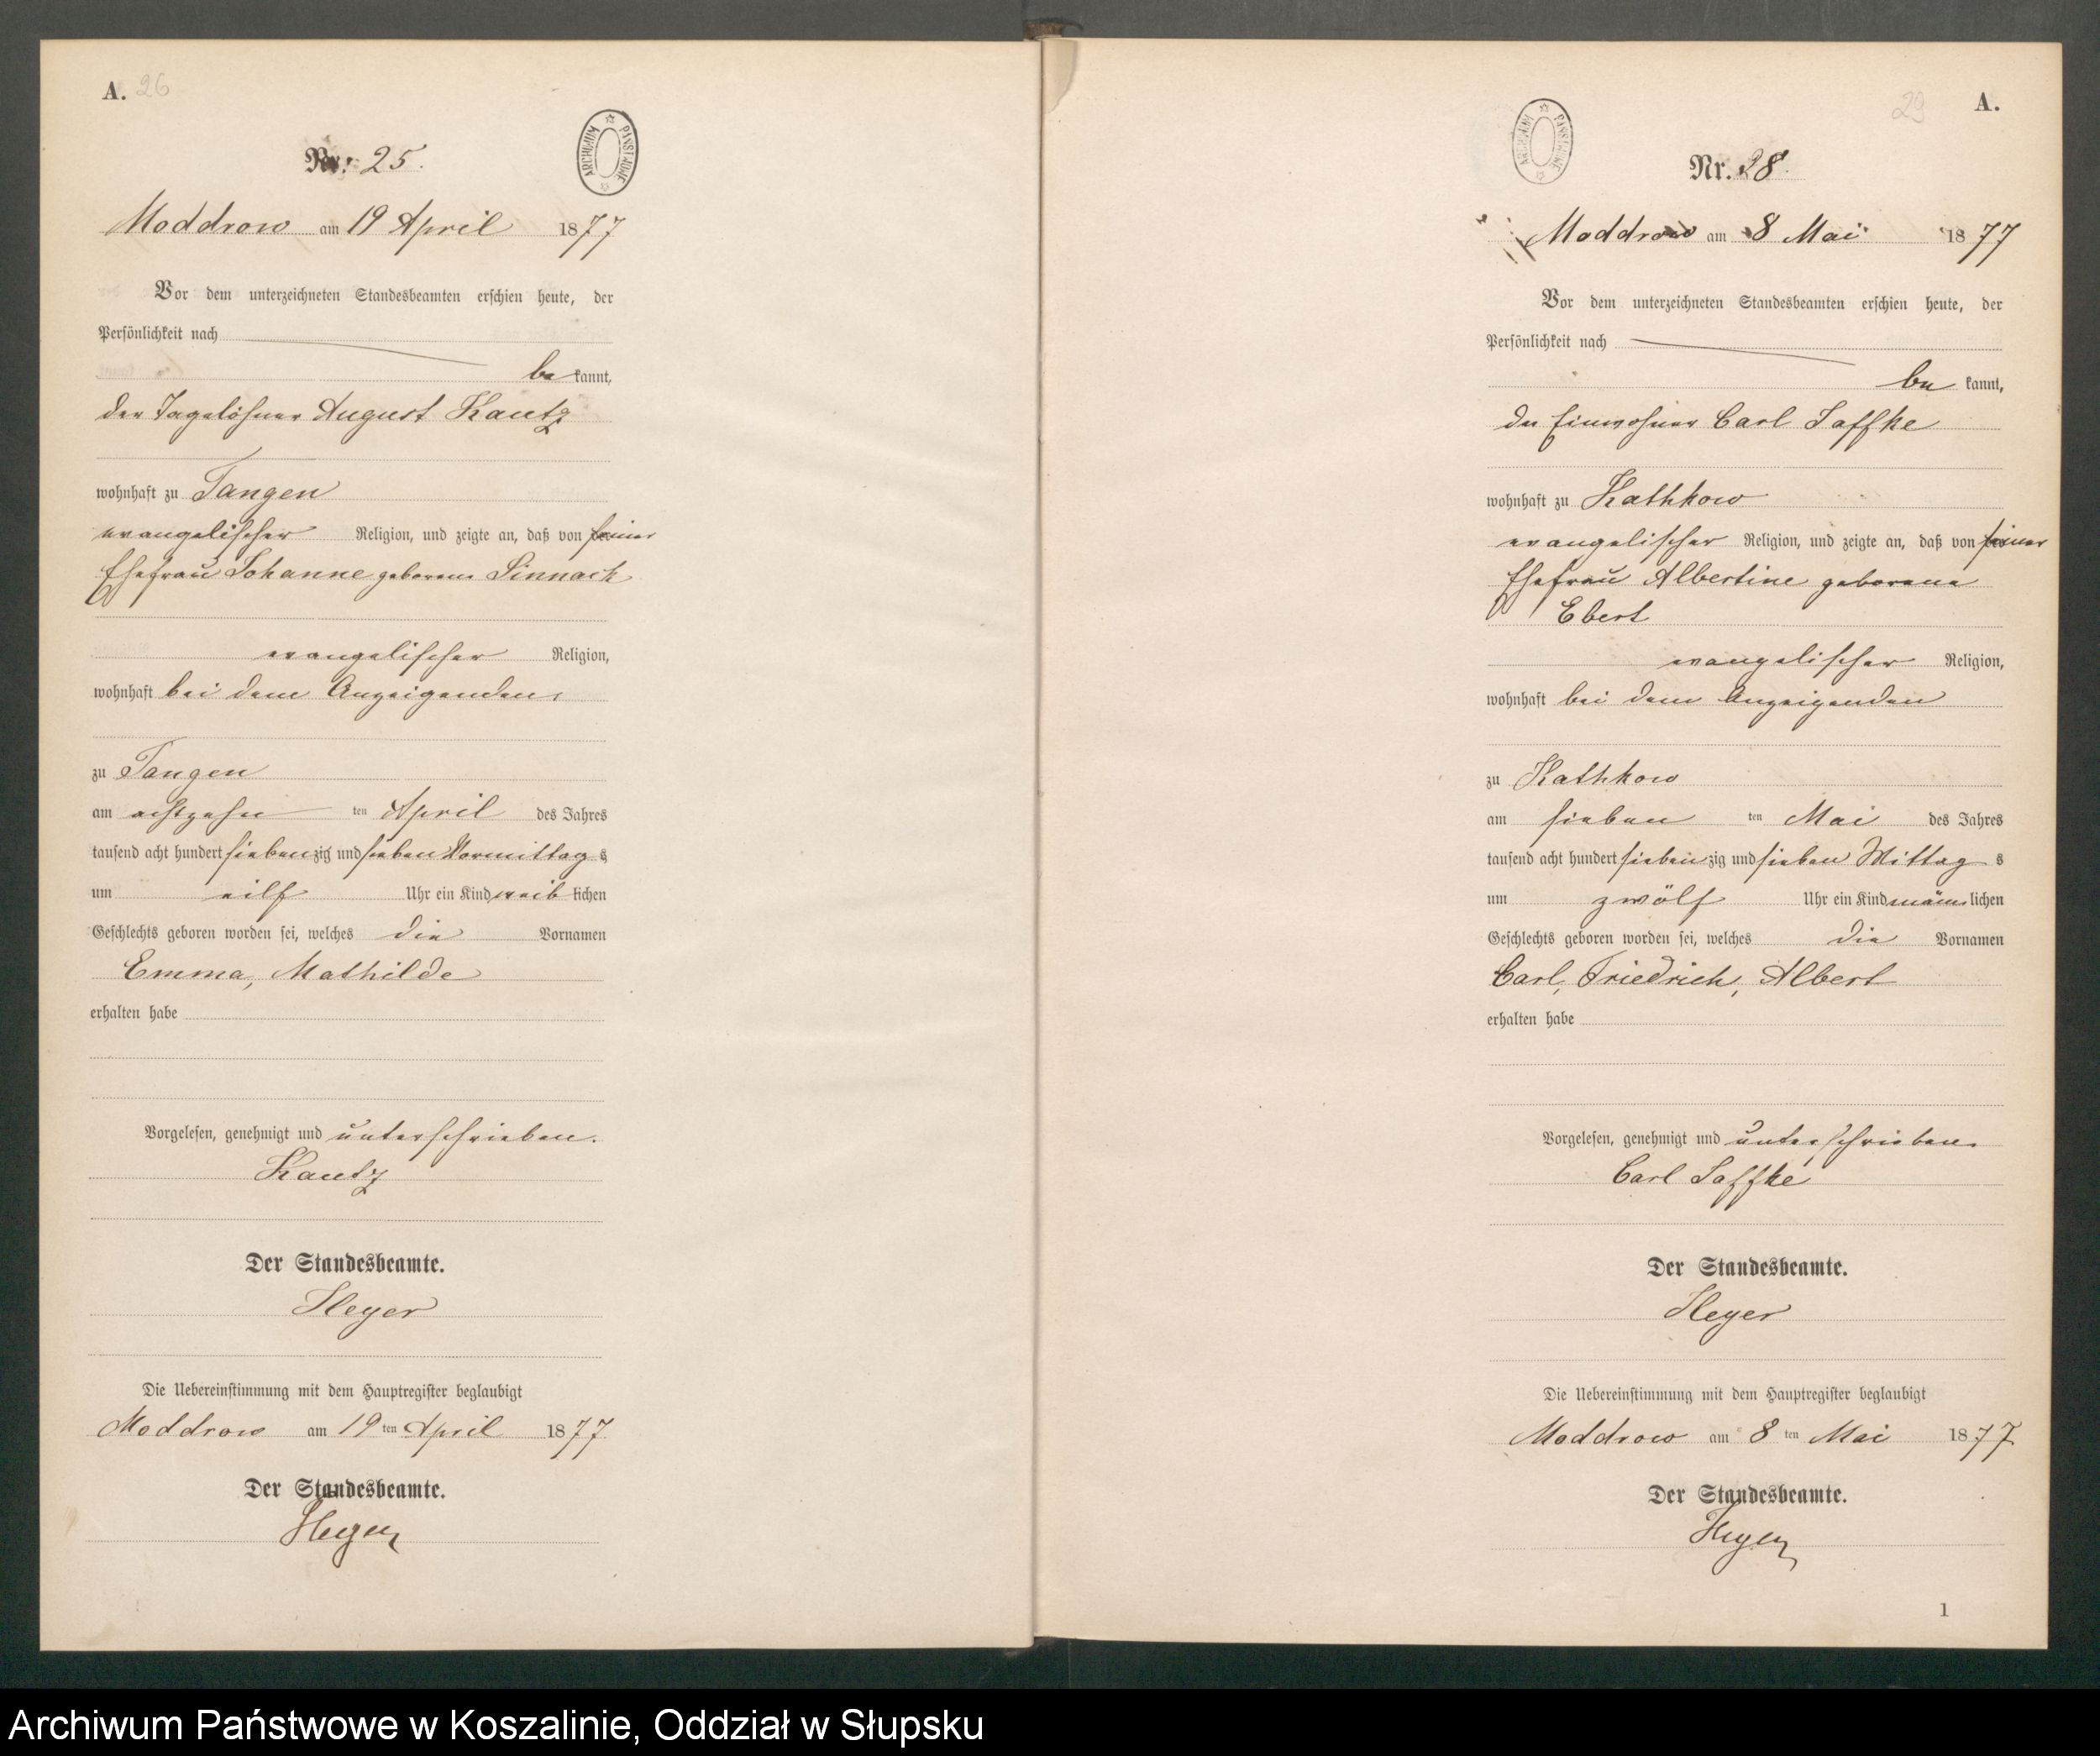 A. 26
Nr. 25.
ARCHIWUM PAŃSTWOWE
Moddrow am 19 April 1877
Vor dem unterzeichneten Standesbeamten erschien heute, der
Persönlichkeit nach
be kannt,
der Tagelöhner August Kautz
wohnhaft zu Tangen
evangelischer Religion, und zeigte an, daß von seiner
Ehefrau Johanne geborene Sinnack
evangelischer Religion,
wohnhaft bei dem Anzeigenden,
zu Tangen
am achtzehn ten April des Jahres
tausend acht hundert siebenzig und sieben Vormittag s
um eilf Uhr ein Kind weib lichen
Geschlechts geboren worden sei, welches die Vornamen
Emma, Mathilde
erhalten habe
Vorgelesen, genehmigt und unterschrieben.
Kautz
Der Standesbeamte.
Heyer
Die Uebereinstimmung mit dem Hauptregister beglaubigt
Moddrow am 19 ten April 1877
Der Standesbeamte.
Heyer
29 A.
ARCHIWUM PAŃSTWOWE
Nr. 28.
Moddrow am 8 Mai 1877
Vor dem unterzeichneten Standesbeamten erschien heute, der
Persönlichkeit nach
be kannt,
der Einwohner Carl Saffke
wohnhaft zu Kathkow
evangelischer Religion, und zeigte an, daß von seiner
Ehefrau Albertine geborene
Ebert
evangelischer Religion,
wohnhaft bei dem Anzeigenden
zu Kathkow
am sieben ten Mai des Jahres
tausend acht hundert siebenzig und sieben Mittag s
um zwölf Uhr ein Kind männ lichen
Geschlechts geboren worden sei, welches die Vornamen
Carl, Friedrich, Albert
erhalten habe
Vorgelesen, genehmigt und unterschrieben.
Carl Saffke
Der Standesbeamte.
Heyer
Die Uebereinstimmung mit dem Hauptregister beglaubigt
Moddrow am 8 ten Mai 1877
Der Standesbeamte.
Heyer
1
Archiwum Państwowe w Koszalinie, Oddział w Słupsku